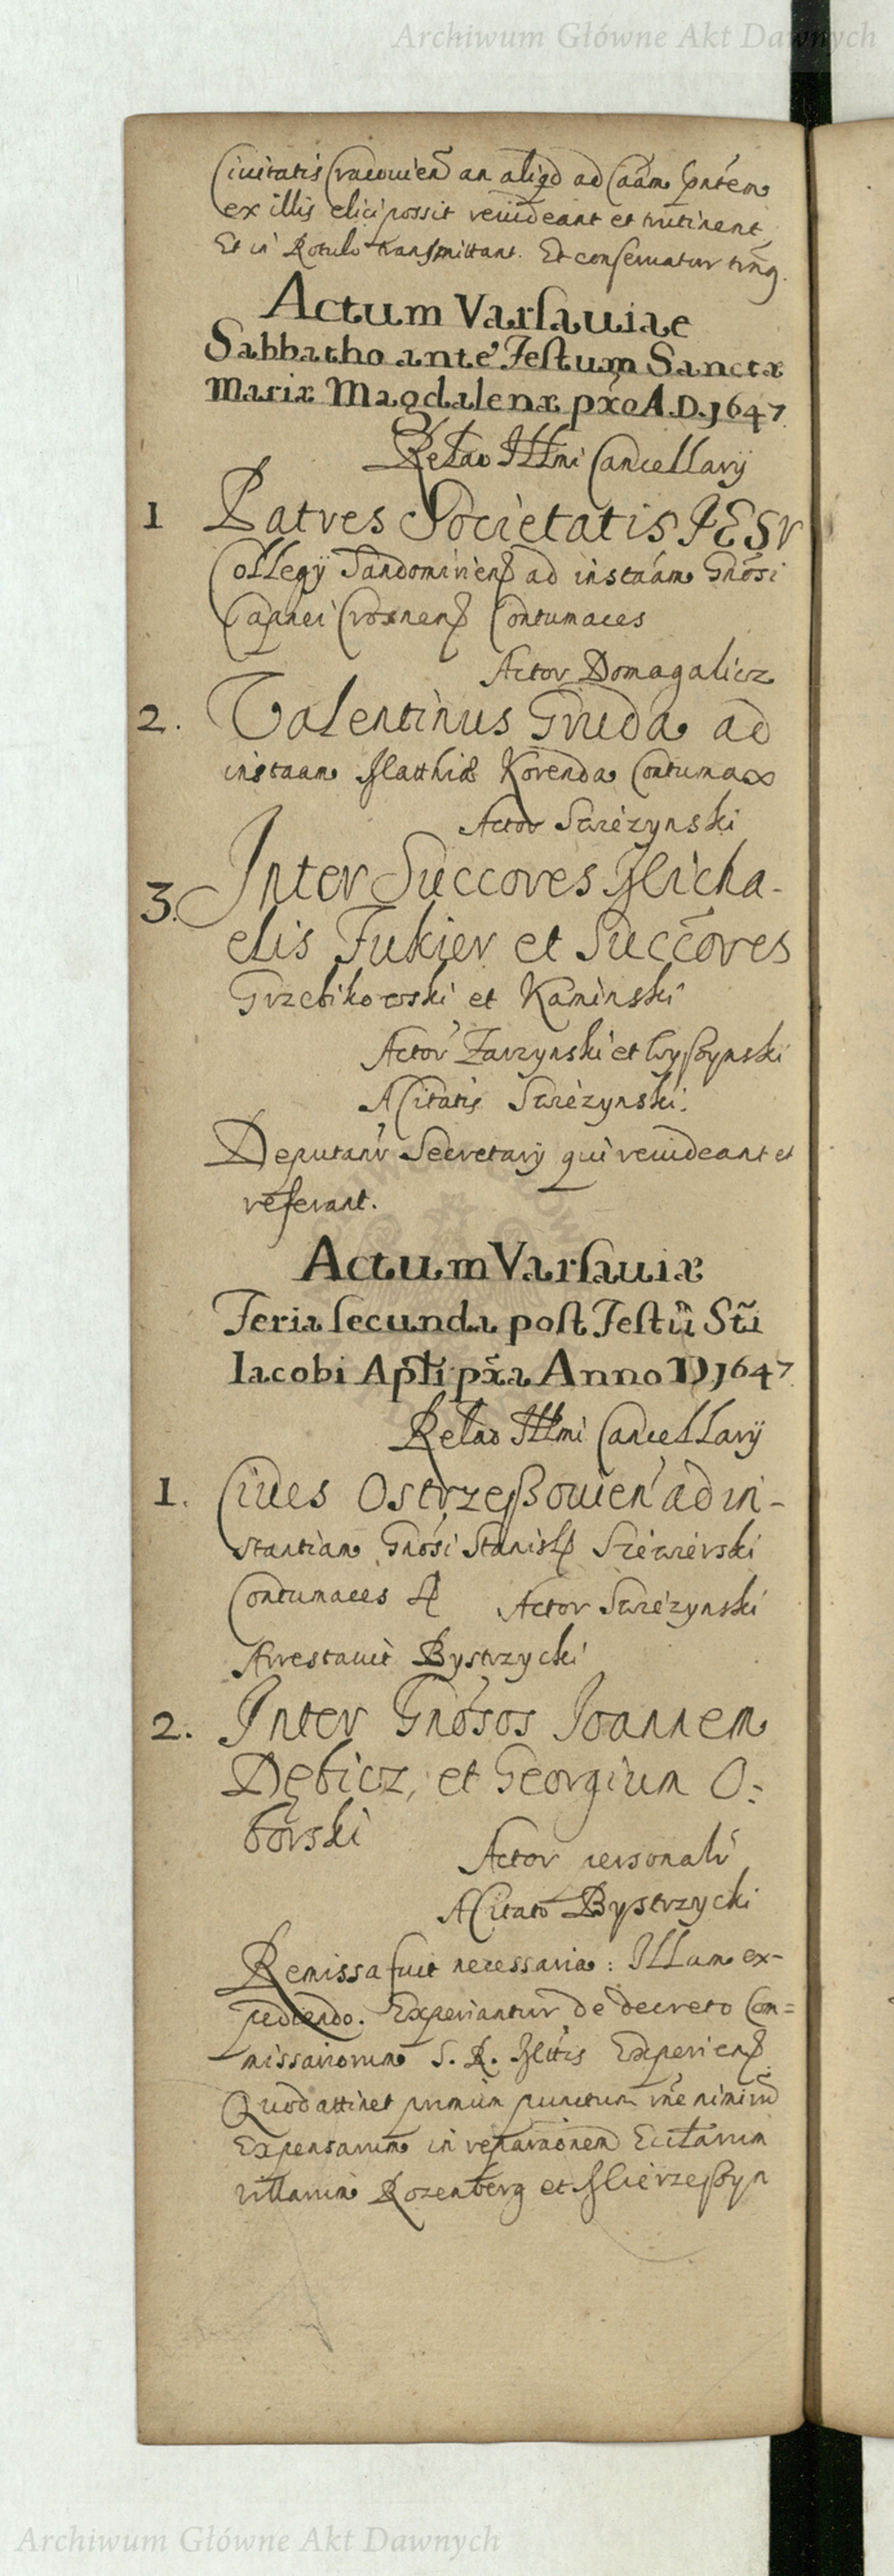 Archiwum Główne Akt Dawnych
Civitatis Cracovien̄ an aliqd ad Caām pn̄tem
ex illis elici possit revideant et trutinent,
Et in Rotulo transmittant. Et conservatur
Actum Varsaviae
Sabbatho ante Festum Sanctæ
Mariæ Magdalenæ px̄o A.D. 1647
Relāo Illmi Cancellarÿ
1 Patres Societatis IESV
Collegÿ Sandomirien̄ ad instaām Gnōsi
Contumaces
Actor Domagalicz
2. Valentinus Gruda ad
instaam Matthiæ Korenda Contumax
Actor
3. Inter Succores Micha-
elis Fukier et Succōres
Grzebikowski et Kaminski
Actor Zarzynski et
A Citatis
Deputant̄ Secretarÿ qui revideant et
referant.
Actum Varsaviæ
Feria secunda post Festū Sti
Iacobi Apłi px̄a Anno D 1647
Relāo Illmi Cancellarÿ
1. Cives Ostrzeßovien ad in-
stantiam Gnōsi Stanisł
Contumaces Actor
Arrestavit Bystrzycki
2. Inter Gnōsos Joannem
Dębicz, et Georgium O:
borski
Actor personalr
A Citato Bystrzycki
Remissa fuit necessaria: Illam ex-
pediendo. Experiantur de decreto Com=
missariorum S. R. Mttis Experien̄
Quod attinet primum punctum rn̄e nimirū
Expensarum in reparaōnem Ecctarum
villarum Rozenberg et Mierzeßyn
Archiwum Główne Akt Dawnych